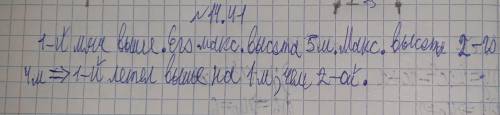 №14.41
1-й мяч выше. Его макс. высота 5м. Макс. высота 2-го
4м ⇒ 1-й летел выше на 1м, чем 2-ой.